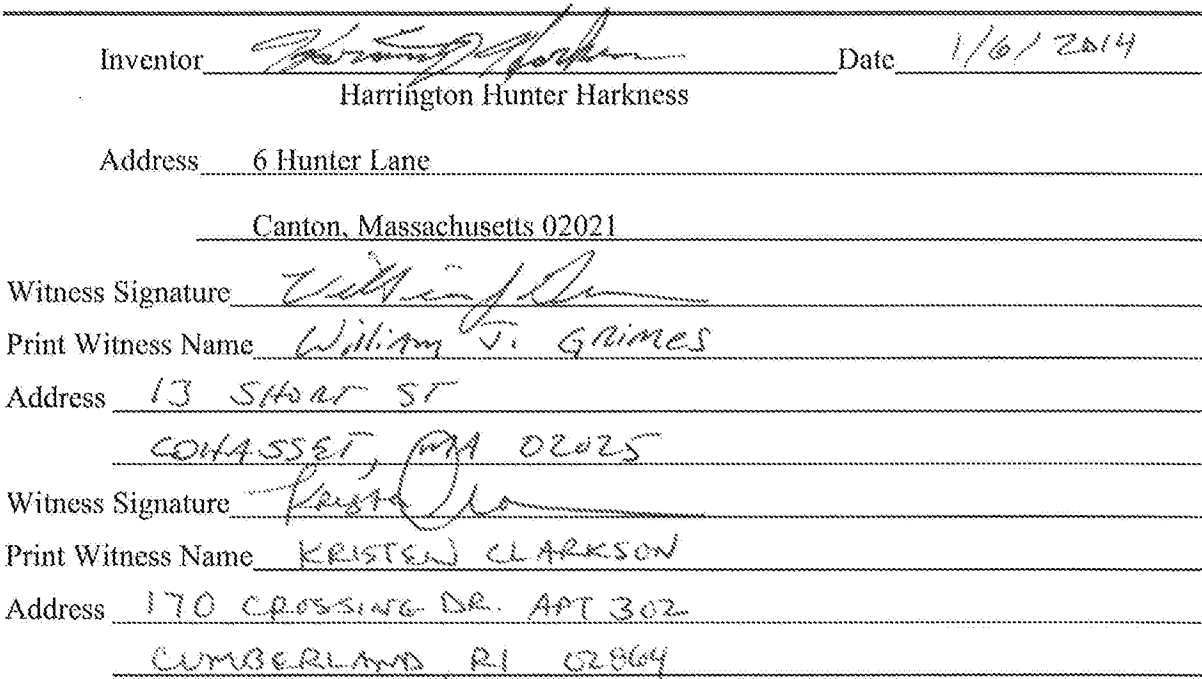 Inventor Date 1/6/2014
Harrington Hunter Harkness
Address 6 Hunter Lane
Canton, Massachusetts 02021
Witness Signature
Print Witness Name William J. Grimes
Address 13 SHORT ST
COHASSET, MA 02025
Witness Signature
Print Witness Name KRISTEN CLARKSON
Address 170 CROSSING DR. APT 302
CUMBERLAND RI 02864